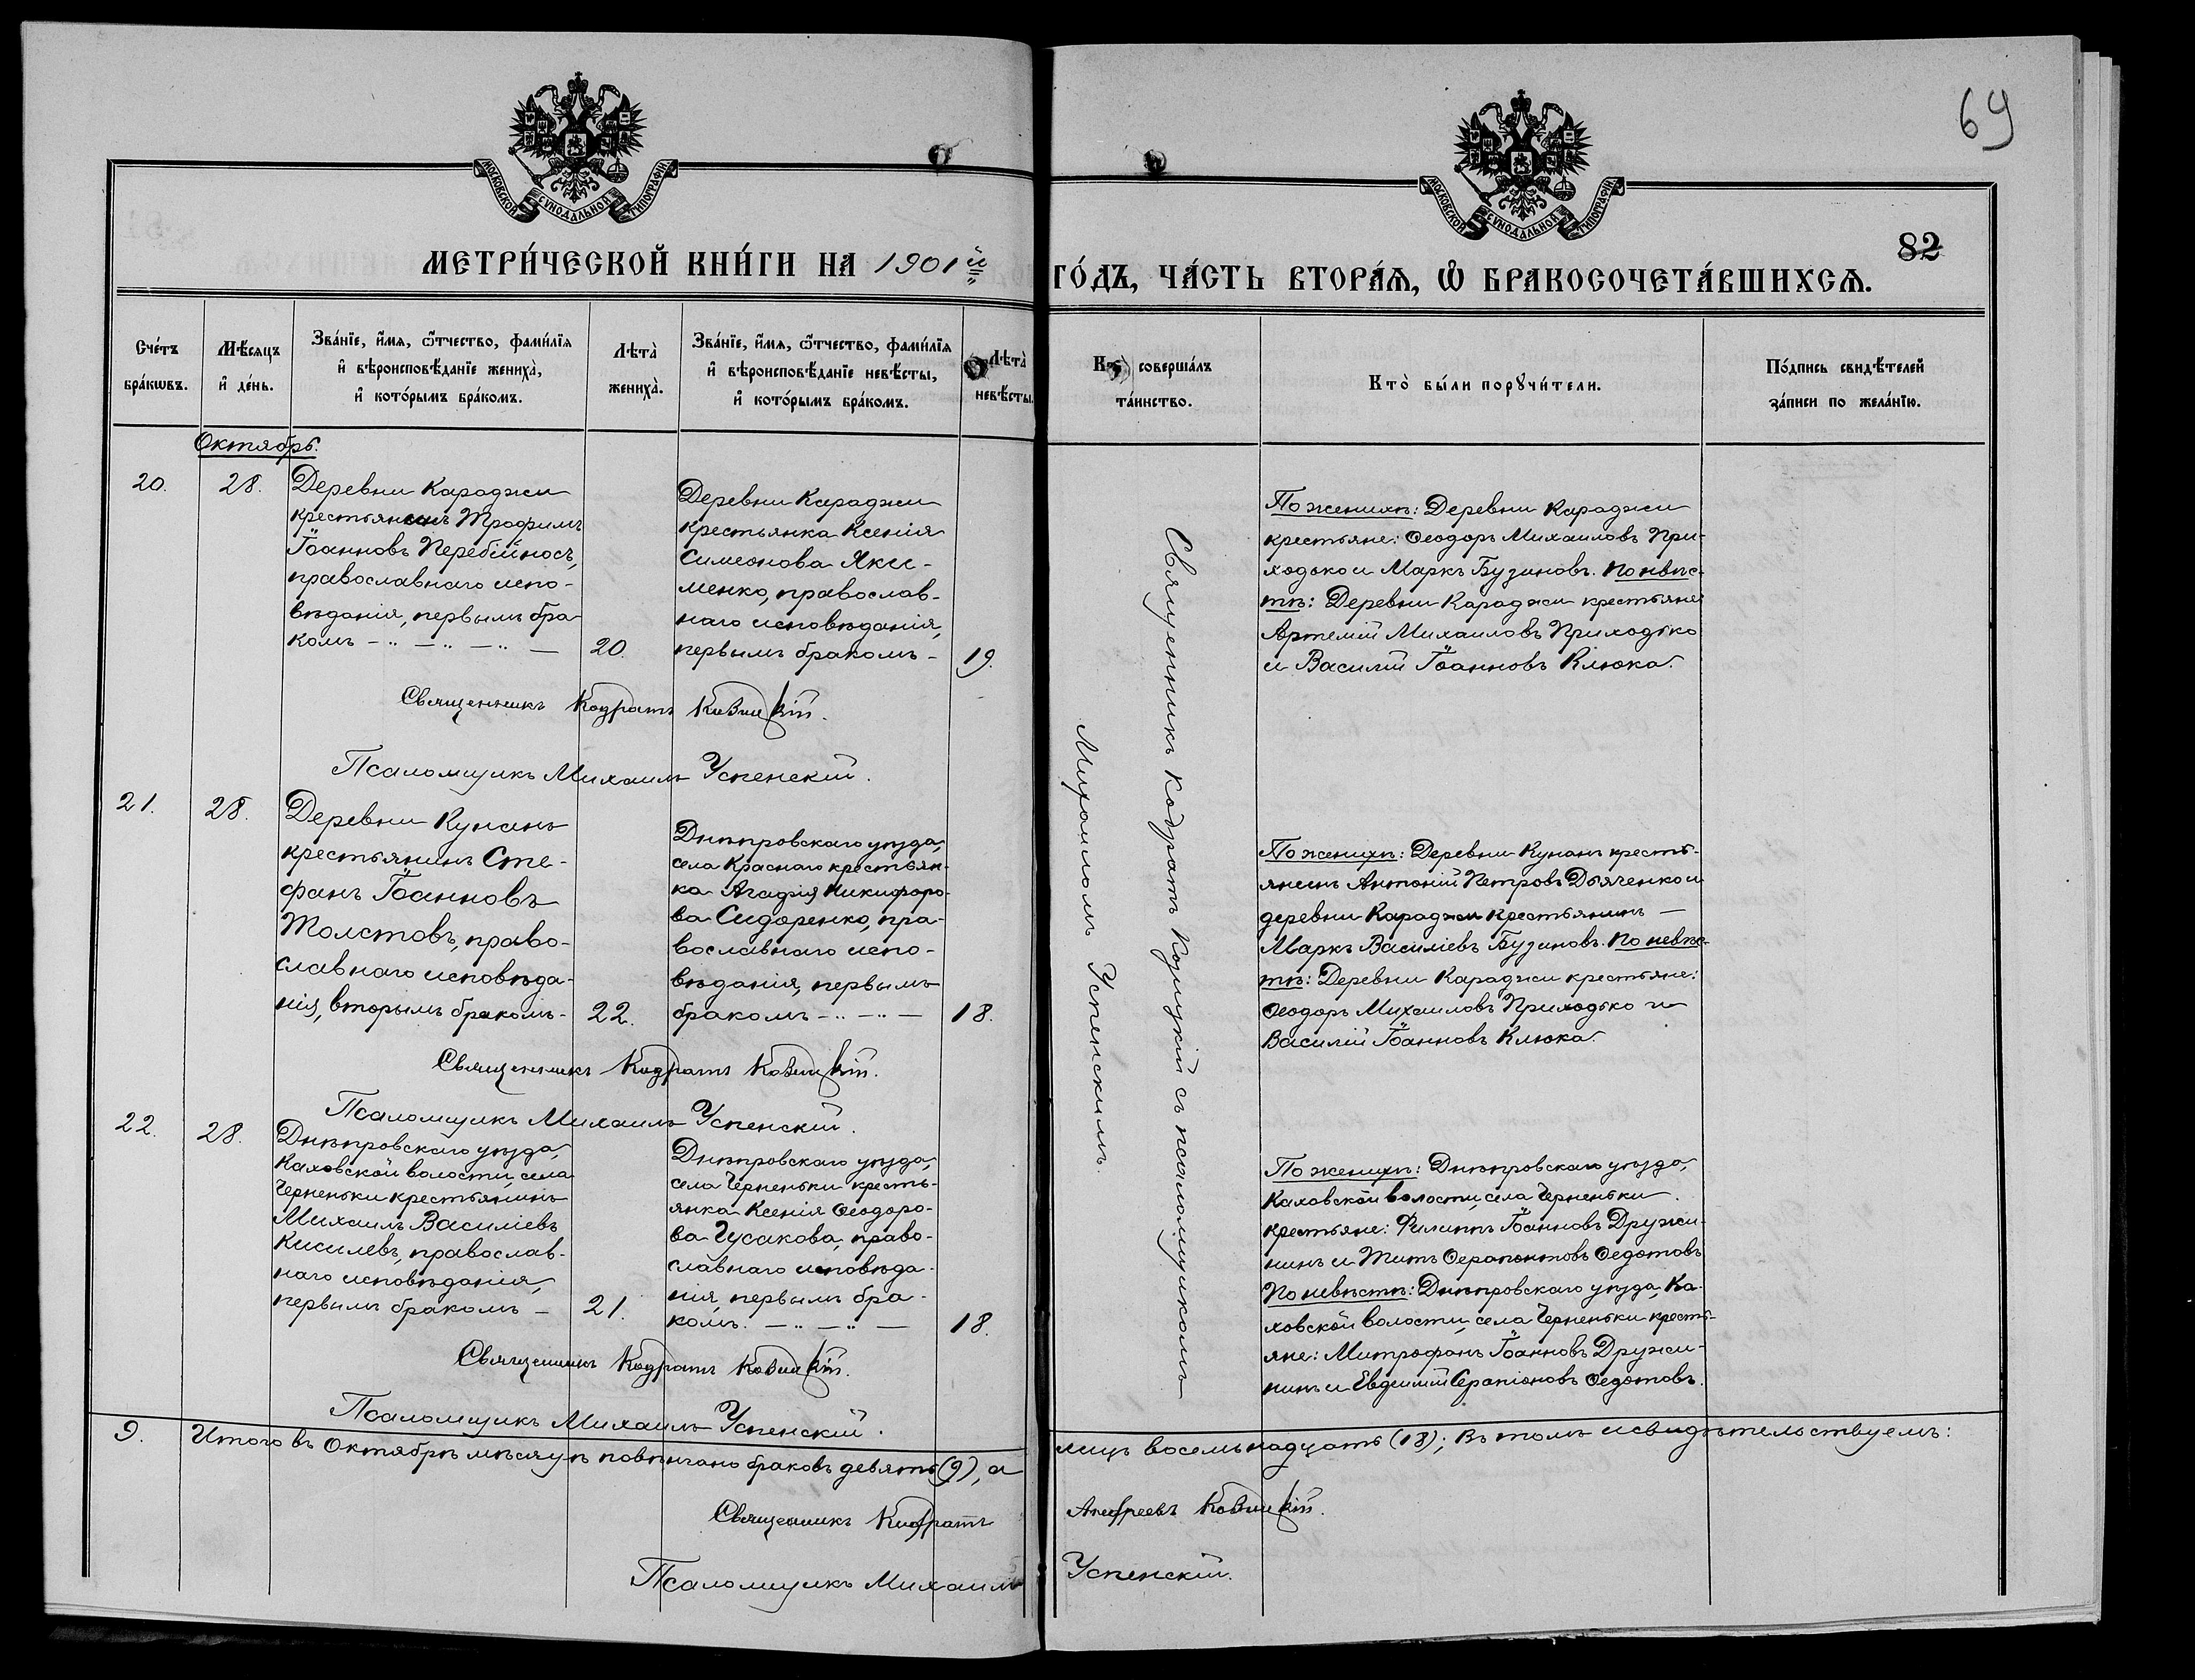 69
МОСКОВСКОЙ СѴНОДАЛЬНОЙ ТИПОГРАФІИ
МОСКОВСКОЙ СѴНОДАЛЬНОЙ ТИПОГРАФІИ
82
МЕТРИ́ЧЕСКОЙ КНИ́ГИ НА 1901й
ГО́ДЪ, ЧА́СТЬ ВТОРА́Ѧ, Ѽ БРАКОСОЧЕТА́ВШИХСѦ.
Сче́тъ бра́кѡвъ.
Мѣ́сяцъ и҆ де́нь.
Зва́нїе, и҆́мя, ѻ҆́тчество, фами́лїя и҆ вѣроисповѣ́данїе жениха̀, и҆ кото́рымъ бра́комъ.
Лѣта̀ жениха̀.
Зва́нїе, и҆́мя, ѻ҆́тчество, фами́лїя и҆ вѣроисповѣ́данїе невѣ́сты, и҆ кото́рымъ бра́комъ.
Лѣта̀ невѣ́сты.
совершалъ та́инство.
Кто̀ бы́ли порꙋчи́тели.
По́дпись свидѣ́телей за́писи по жела́нїю.
Октябрь.
20.
28.
Деревни Караджи
крестьянинъ Трофимъ
Іоанновъ Перебійносъ,
православнаго испо-
вѣданія, первымъ бра-
комъ — „ — „ — „ —
20.
Деревни Караджи
крестьянка Ксенія
Симеонова Яки-
менко, православ-
наго исповѣданія,
первымъ бракомъ —
19.
По женихѣ: Деревни Караджи
крестьяне: Ѳеодоръ Михаиловъ При-
ходько и Маркъ Бузиновъ. По невѣс-
тѣ: Деревни Караджи крестьяне
Артемій Михаиловъ Приходько
и Василій Іоанновъ Клюка.
Священникъ Кодратъ Козицкій.
Псаломщикъ Михаилъ Успенскій.
Священникъ Кодратъ Козицкій съ псаломщикомъ
Михаиломъ Успенскимъ.
21.
28.
Деревни Кунанъ
крестьянинъ Сте-
фанъ Іоанновъ
Толстовъ, право-
славнаго исповѣда-
нія, вторымъ бракомъ —
22.
Днѣпровскаго уѣзда,
села Краснаго крестьян-
ка Агафія Никифоро-
ва Сидоренко, пра-
вославнаго испо-
вѣданія, первымъ
бракомъ — „ — „ —
18.
По женихѣ: Деревни Кунанъ кресть-
янинъ Антоній Петровъ Дьяченко и
деревни Караджи крестьянинъ —
Маркъ Василіевъ Бузиновъ. По невѣс-
тѣ: Деревни Караджи крестьяне:
Ѳеодоръ Михаиловъ Приходько и
Василій Іоанновъ Клюка.
Священникъ Кодратъ Козицкій.
Псаломщикъ Михаилъ Успенскій.
22.
28.
Днѣпровскаго уѣзда,
Каховской волости, села
Черненьки крестьянинъ
Михаилъ Василіевъ
Кисилевъ, православ-
наго исповѣданія,
первымъ бракомъ —
21.
Днѣпровскаго уѣзда,
села Черненьки кресть-
янка Ксенія Ѳеодоро-
ва Гусакова, право-
славнаго исповѣда-
нія, первымъ бра-
комъ. — „ — „ —
18.
По женихѣ: Днѣпровскаго уѣзда,
Каховской волости, села Черненьки
крестьяне: Филиппъ Іоанновъ Дружи-
нинъ и Титъ Ѳерапонтовъ Ѳедотовъ
По невѣстѣ: Днѣпровскаго уѣзда, Ка-
ховской волости, села Черненьки кресть-
яне: Митрофанъ Іоанновъ Дружи-
нинъ и Евдокимъ Серапіоновъ Ѳедотовъ.
Священникъ Кодратъ Козицкій.
Псаломщикъ Михаилъ Успенскій.
9.
Итого въ Октябрѣ мѣсяцѣ повѣнчано браковъ девять (9), а
лицъ восемьнадцать (18); въ томъ и свидѣтельствуемъ:
Священникъ Кодратъ Андреевъ Козицкій.
Псаломщикъ Михаилъ Успенскій.